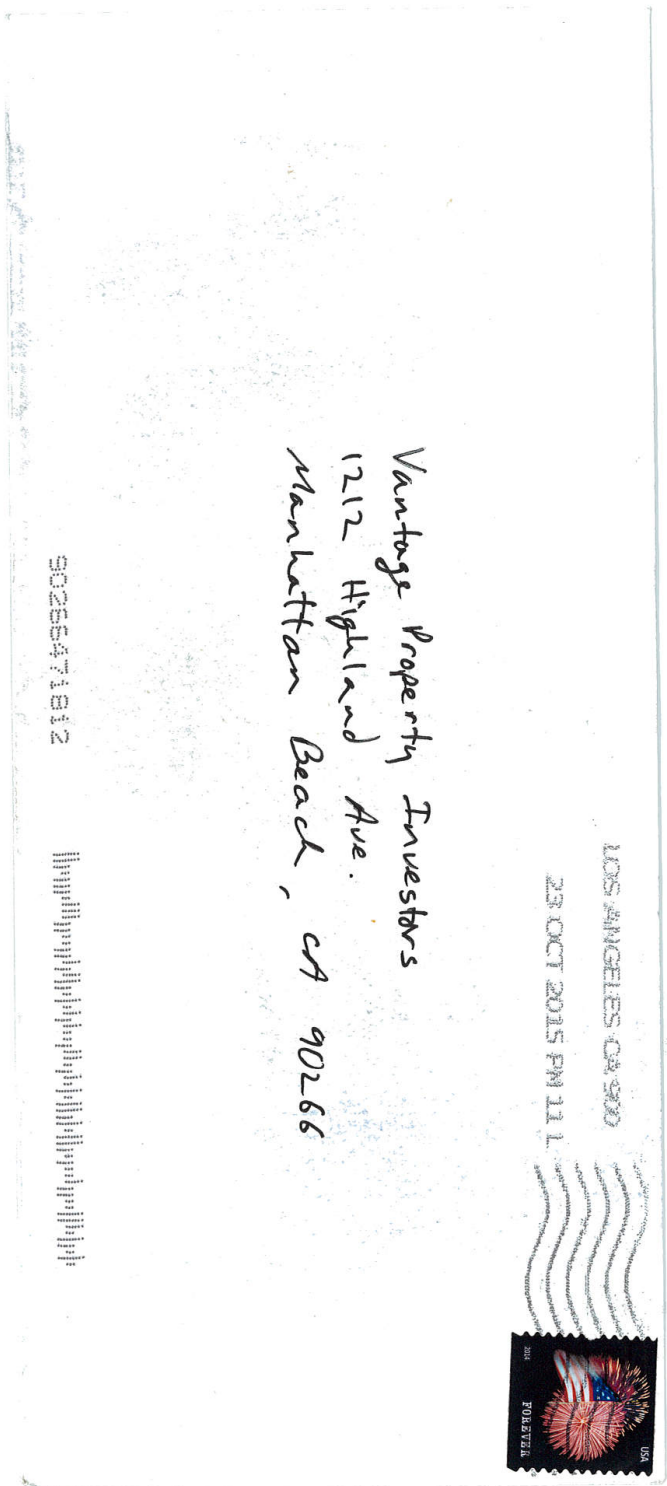 LOS ANGELES CA 900
23 OCT 2015 PM 11 L
USA
2014
FOREVER
Vantage Property Investors
1212 Highland Ave.
Manhattan Beach, CA 90266
90266471812